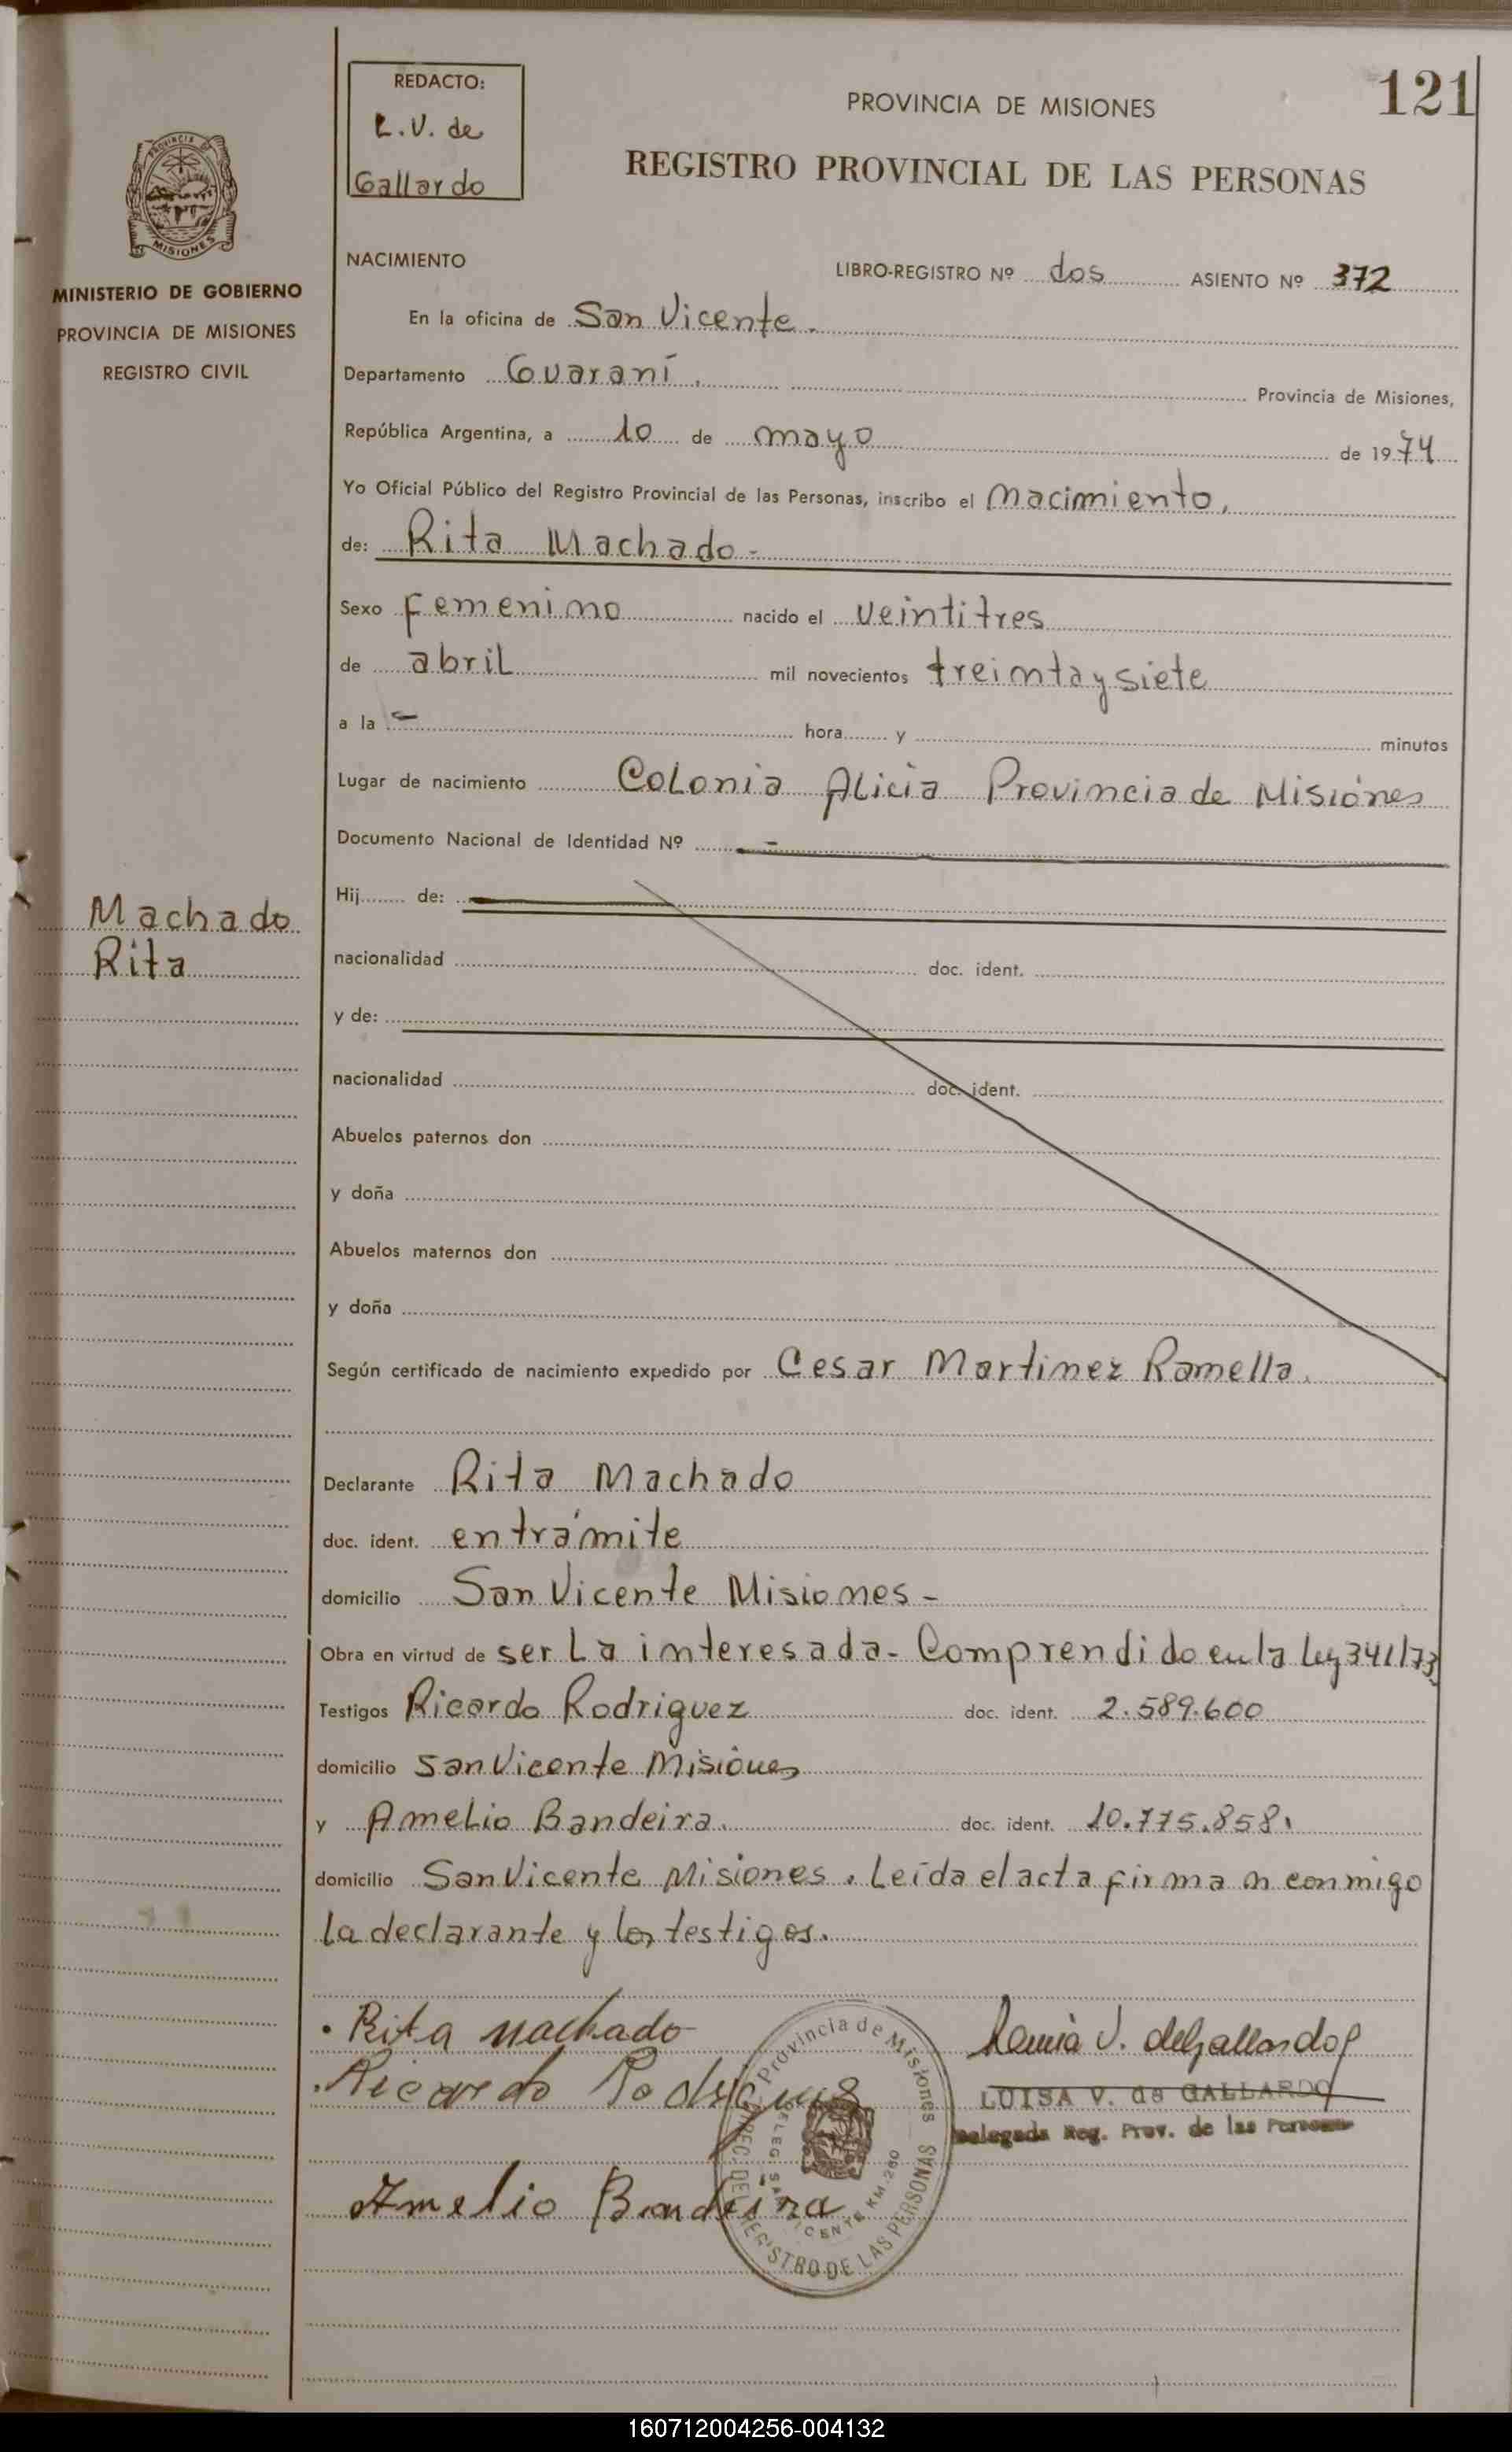 121
REDACTO:
L.V. de
Gallardo
PROVINCIA DE MISIONES
REGISTRO PROVINCIAL DE LAS PERSONAS
PROVINCIA DE
MISIONES
MINISTERIO DE GOBIERNO
PROVINCIA DE MISIONES
REGISTRO CIVIL
Machado
Rita
NACIMIENTO
LIBRO-REGISTRO Nº dos ASIENTO Nº 372
En la oficina de San Vicente.
Departamento Guaraní. Provincia de Misiones,
República Argentina, a 10 de mayo de 1974
Yo Oficial Público del Registro Provincial de las Personas, inscribo el nacimiento,
de: Rita Machado-
Sexo Femenino nacido el veintitres
de abril mil novecientos treinta y siete
a la - hora y minutos
Lugar de nacimiento Colonia Alicia Provincia de Misiones
Documento Nacional de Identidad Nº -
Hij de:
nacionalidad doc. ident.
y de:
nacionalidad doc. ident.
Abuelos paternos don
y doña
Abuelos maternos don
y doña
Según certificado de nacimiento expedido por Cesar Martinez Ramella.
Declarante Rita Machado
doc. ident. en trámite
domicilio San Vicente Misiones-
Obra en virtud de ser La interesada- Comprendido en la ley 341/73
Testigos Ricardo Rodriguez doc. ident. 2.589.600
domicilio San Vicente Misiones
y Amelio Bandeira. doc. ident. 10.775.858.
domicilio San Vicente Misiones. Leída el acta firman conmigo
la declarante y los testigos.
Rita Machado
Ricardo Rodriguez
Amelio Bandeira
V. de Gallardo
LUISA V. de GALLARDO
Delegada Reg. Prov. de las Personas
Provincia de Misiones
DIREC. DEL REGISTRO DE LAS PERSONAS
DELEG. SAN VICENTE KM. 260
160712004256-004132